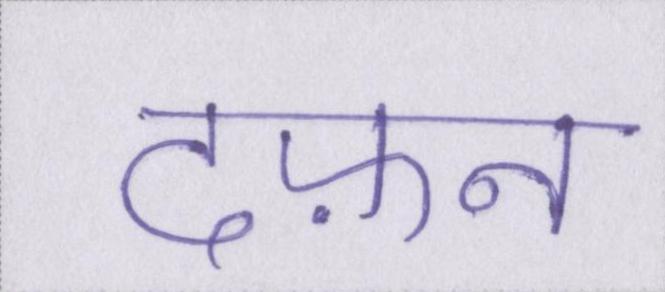 दफ़न